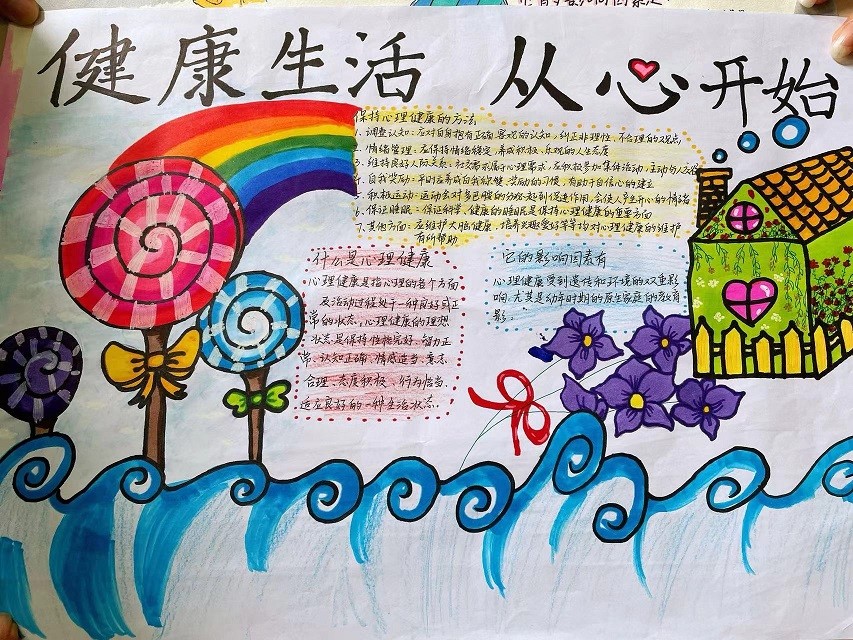 健康生活 从心开始
保持心理健康的方法
1、调整认知:应对自身抱有正确、客观的认知,纠正非理性、不合理的观点
2、情绪管理:应保持情绪稳定,养成积极、乐观的人生态度
3、维持良好人际关系:社交需求属于心理需求,应积极参加集体活动,主动与人
4、自我奖励:平时应养成自我 奖励的习惯,有助于自信心的建立
5、积极运动:运动会对多巴胺的分泌起到促进作用,会使人产生开心的情绪
6、保证睡眠:保证科学、健康的睡眠是保持心理健康的重要方面
7、其他方面:应维护大脑健康,培养兴趣爱好等等均对心理健康的维护
有所帮助
什么是心理健康
心理健康是指心理的各个方面
及活动过程处于一种良好或正
常的状态,心理健康的理想
状态是保持性格完好、智力正
常、认知正确、情感适当、意志
合理、态度积极、行为恰当、
适应良好的一种生活状态.
它的影响因素有
心理健康受到遗传和环境的双重影
响,尤其是幼年时期的原生家庭的教育
影